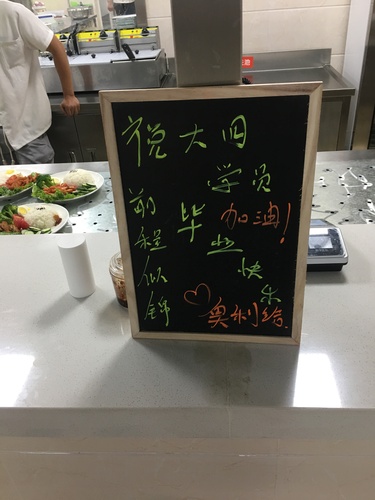 祝大四
学员
毕业快乐
前程似锦
加油!
奥利给.